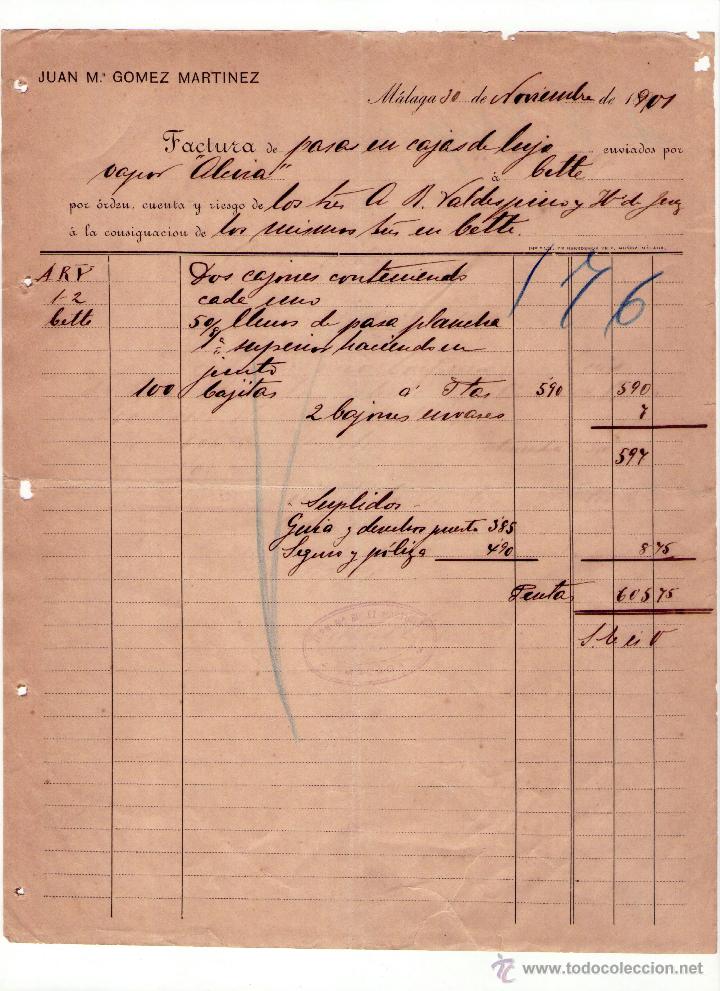 JUAN M.ª GOMEZ MARTINEZ
Málaga 30 de Noviembre de 1901
Factura de pasas en cajas de lujo enviados por
vapor "Alcira" á Cette
por órden, cuenta y riesgo de los Sres A. R. Valdespino y Hº de Jerez
á la consignacion de los mismos Sres en Cette.
ARV Dos cajones conteniendo 176
1-2 cada uno
Cette 50/ llenos de pasa plancha
1ª superior haciendo en
junto
100 Cajitas á Ptas 5.90 590
2 Cajones envases 7
597
Suplidos
Guia y derechos puerto 3'85
Seguro y póliza 4'90 8 75
Pesetas 605 75
S. E. ú O
www.todocoleccion.net